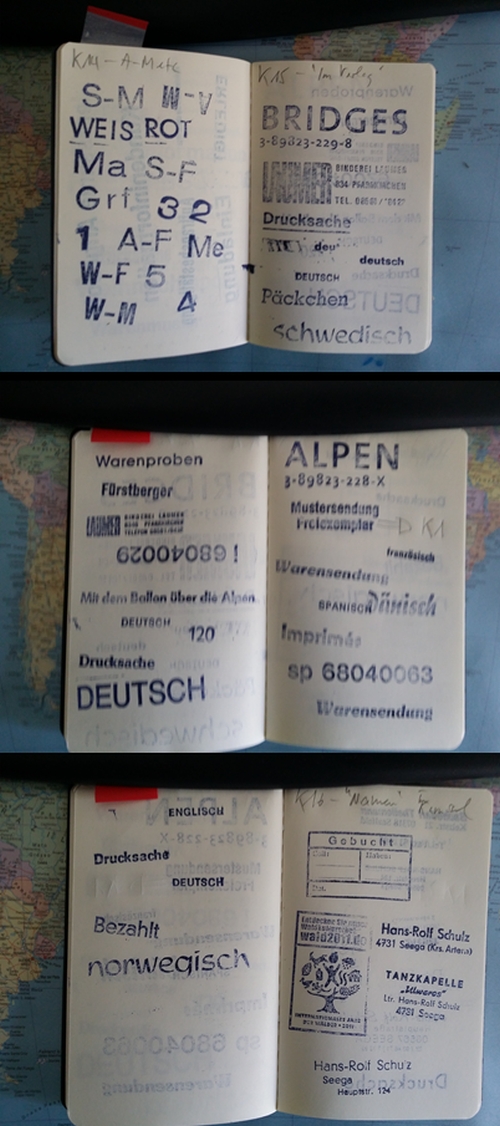 K14 - A-Metz
S-M W-V
WEIS ROT
Ma S-F
Grf 3 2
1 A-F Me
W-F 5
W-M 4
K15 - "Im Verlag"
BRIDGES
3-89823-229-8
LAUMER BINDEREI LAUMER
834 PFARRKIRCHEN
TEL. 08561/
Drucksache
deu
deutsch
DEUTSCH
Päckchen
schwedisch
Warenproben
Fürstberger
LAUMER BINDEREI LAUMER
8340 PFARRKIRCHEN
68040029 !
Mit dem Ballon über die Alpen
DEUTSCH
120
Drucksache
DEUTSCH
ALPEN
3-89823-228-X
Mustersendung
Freiexemplar = D K1
französisch
Warensendung
SPANISCH Dänisch
Imprimés
sp 68040063
Warensendung
ENGLISCH
Drucksache
DEUTSCH
Bezahlt
norwegisch
K16 - "Namen"
Gebucht
Soll: Haben:
Dat.
Entdecken Sie unser
Waldkulturerbe!
wald2011.de
INTERNATIONALES JAHR
DER WÄLDER • 2011
Hans-Rolf Schulz
4731 Seega (Krs. Artern)
TANZKAPELLE
Ltr. Hans-Rolf Schulz
4731 Seega
Hans-Rolf Schulz
Seega
Hauptstr. 124